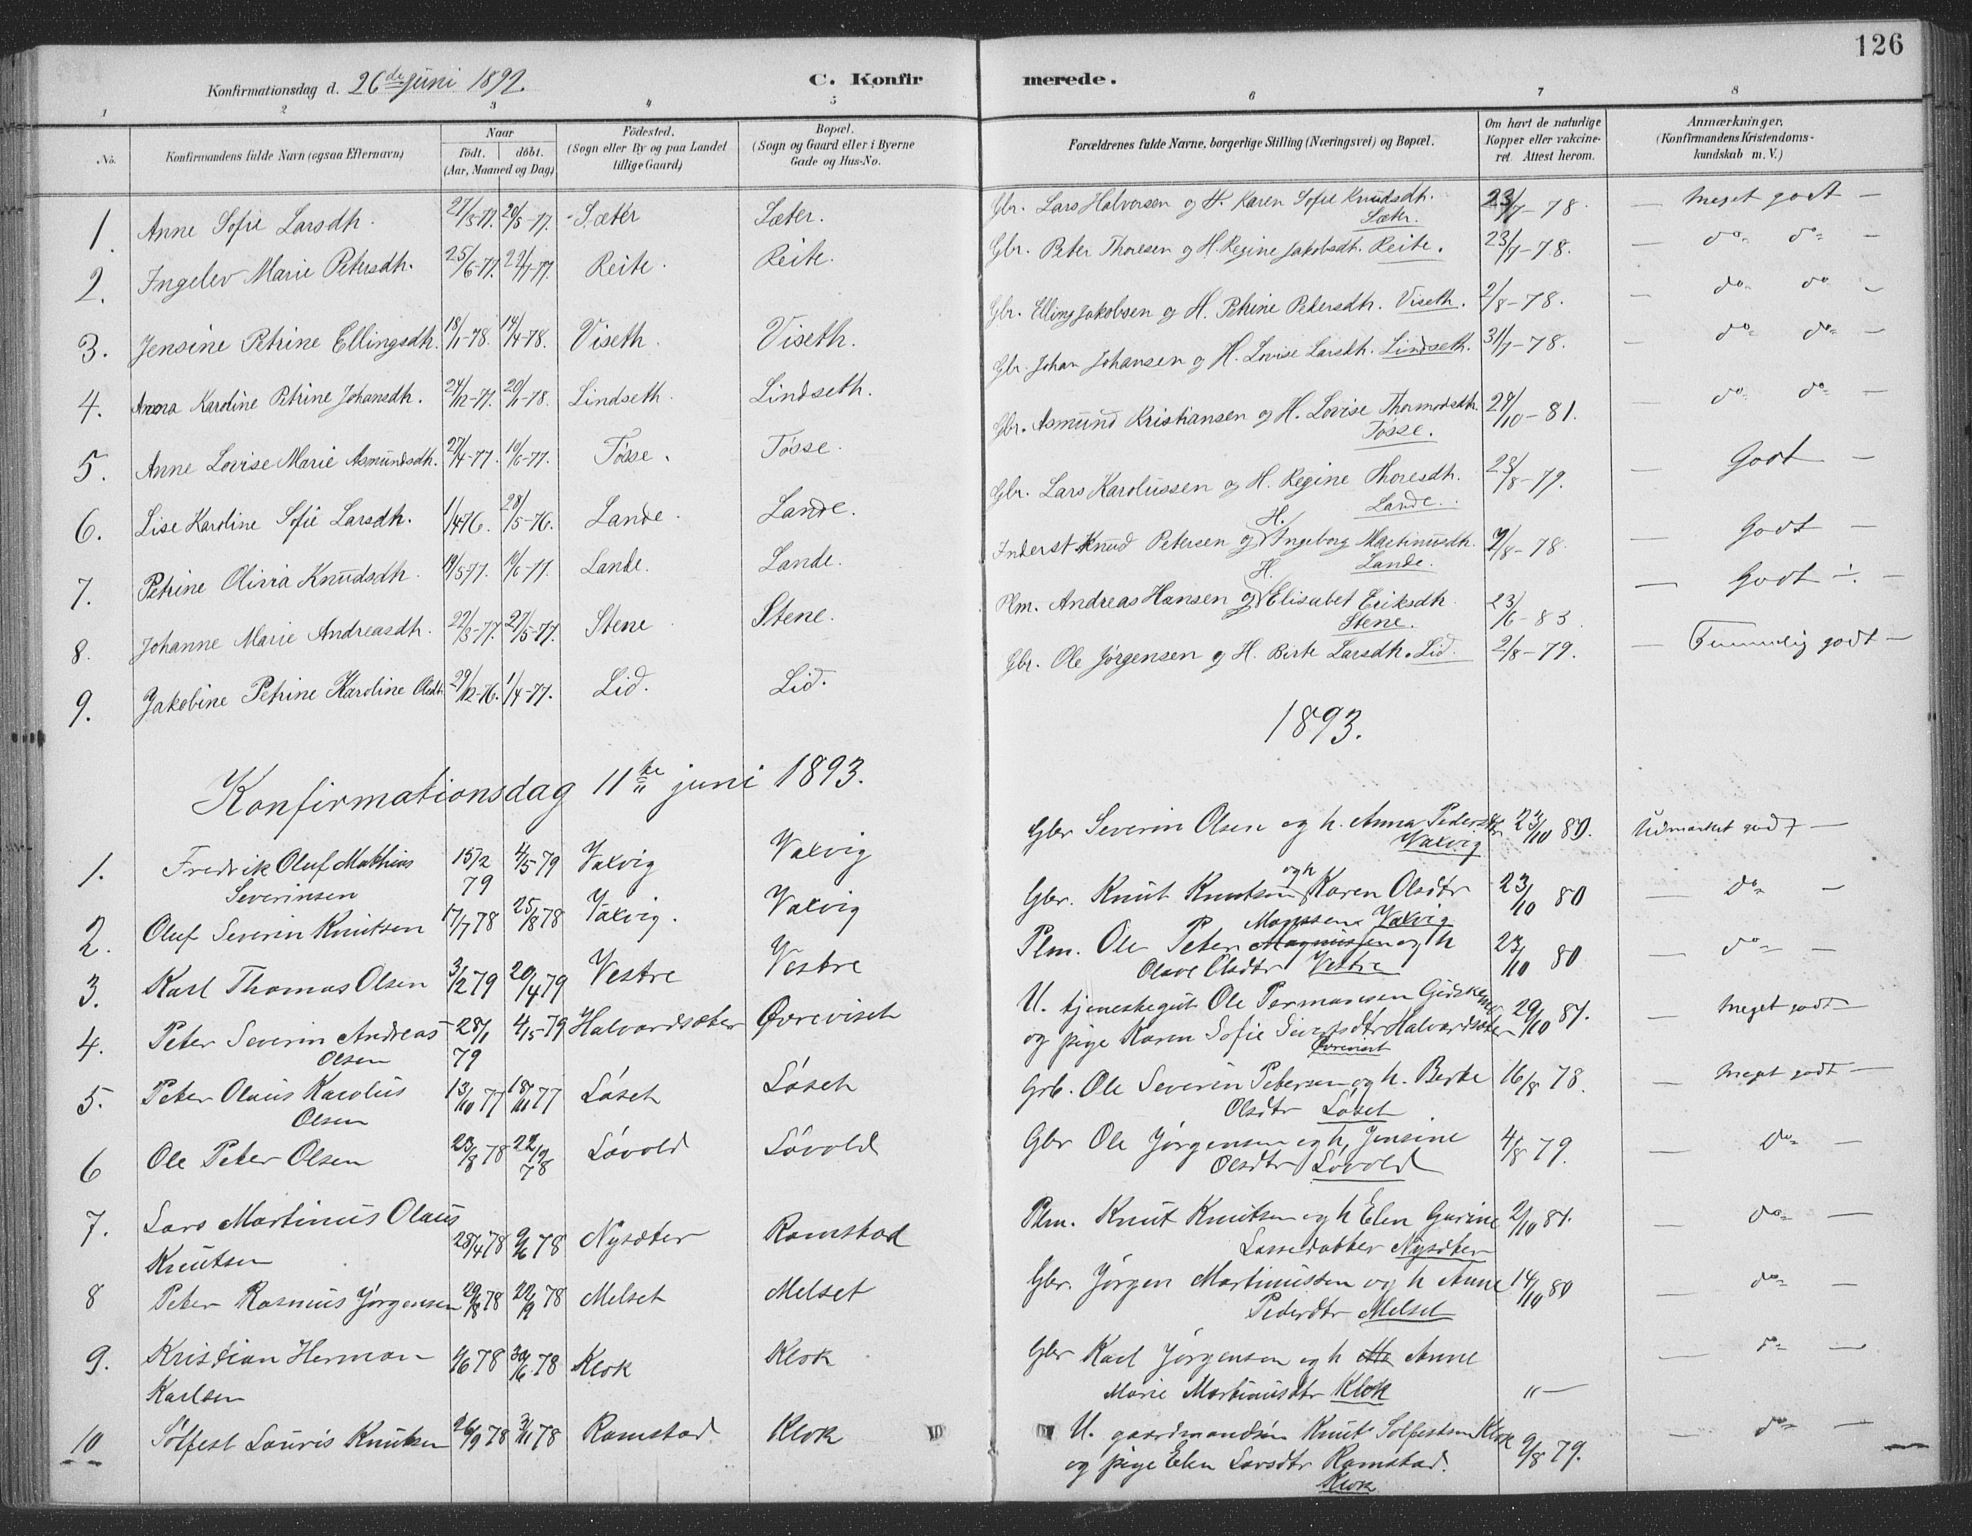 126
Konfirmationsdag d. 26de juni 1892. C. Konfirmerede.
1 2 3 4 5 6 7 8
No. Konfirmandens fulde Navn (ogsaa Efternavn) Naar født. døbt. (Aar, Maaned og Dag) Fødested. (Sogn eller By og paa Landet tillige Gaard) Bopæl. (Sogn og Gaard eller i Byerne Gade og Hus-No. Forældrenes fulde Navne, borgerlige Stilling (Næringsvei) og Bopæl. Om havt de naturlige Kopper eller vakcineret. Attest herom. Anmærkninger, (Konfirmandens Kristendomskundskab m. V.)
1. Anne Sofie Larsdh. Sæter Sæter. Gbr. Lars Halvorsen og H. Karen Sofie Knudsdh. Sæter. 23/7-78. — Meget godt —
2. Ingelev Marie Petersdh. 25/6-77. Reite. Reite. Gbr. Peter Thoresen og H. Regine Jakobsdh. Reite. 23/7-78. — do do —
3. Jensine Petrine Ellingsdh. 18/1-78. 14/4-78. Viseth. Viseth. Gbr. Elling Jakobsen og H. Petrine Petersdh. Viseth. 2/8-78. — do do —
4. Anna Karoline Petrine Johansdh. 24/12-77. 20/1-78. Lindseth. Lindseth. Gbr. Johan Johansen og H. Lovise Larsdh. Lindseth. 31/7-78. — do do —
5. Anne Lovise Marie Asmundsdh. 27/4-77. 10/6-77. Tösse. Tösse. Gbr. Asmund Kristiansen og H. Lovise Thormodsdh. Tösse. 29/10-81. — do do —
6. Lise Karoline Sofie Larsdh. 1/4 76. 28/5-76. Lande. Lande. Gbr. Lars Karolussen og H. Regine Thoresdh. Lande. — Godt —
7. Petrine Olivia Knudsdh. 19/5 77. 10/6-77. Lande. Lande. Inderst Knud Petersen og H. Ingeborg Martinusdh. Lande. — Godt —
8. Johanne Marie Andreasdh. 22/3-77. 27/5-77. Stene Stene. Plm. Andreas Hansen og H. Elisabet Eriksdh. Stene. 23/6-83 — Godt ÷. —
9. Jakobine Petrine Karoline Olsdt. 29/12-76. 1/4-77. Lid. Lid. Gbr. Ole Jørgensen og H. Birte Larsdh. Lid. 2/8-79. — Temmelig godt —
1893.
Konfirmationsdag 11te juni 1893.
1. Fredrik Oluf Mathias Severinsen 15/2 79 4/5-79 Vaxvig Vaxvig Gbr Severin Olsen og h. Anna Pedersdtr Vaxvig 23/10 80. Udmærket godt —
2. Oluf Severin Knutsen 17/7 78 25/8 78 Vaxvig. Vaxvig Gbr. Knut Knutsen og h Karen Olsdtr Vaxvig 23/10 80 — do —
3. Karl Thomas Olsen 3/2 79 20/4 79 Vestre Vestre Plm. Ole Peter Monssen Magnussen og h Olave Olsdtr Vestre 23/10 80 — do —
4. Peter Severin Andreas Olsen 28/1 79 4/5-79 Halvardsæter Øvreviset U. tjenestegut Ole Permansen og pige Karen Sofie Sivertsdtr Halvardsæter Øvreviset 29/10 81. — Meget godt —
5. Peter Olaus Karolus Olsen 13/10 77 18/11 77 Løset Løset Grb. Ole Severin Petersen og h. Berte Olsdtr Løset 16/8 78. — Meget godt —
6 Ole Peter Olsen 23/8 78 22/9 78 Løvold Løvold Gbr Ole Jørgensen og h. Jensine Olsdtr Løvold 4/8 79. — do —
7. Lars Martinus Olaus Knutsen 28/4 78 9/6 78 Nysæter Ramstad Plm. Knut Knutsen og h Elen Gurine Lassedatter Nysæter 2/10 81. — do —
8 Peter Rasmus Jørgensen 29/8 78 22/9 78 Melset Melset Gbr. Jørgen Martinussen og h Anne Pedersdtr Melset 14/10 80 — do —
9. Kristian Herman Karlsen 30/6 78 Klok Klok Gbr Karl Jørgensen og h Anne Marie Martinusdtr Klok " — — do —
10 Sølfest Lauris Knutsen 26/9 78 3/11 78 Ramstad Klok U. gaardmandsøn Knut Solfestsen Klok og pige Elen Larsdtr Ramstad. Klok 9/8 79. — do —